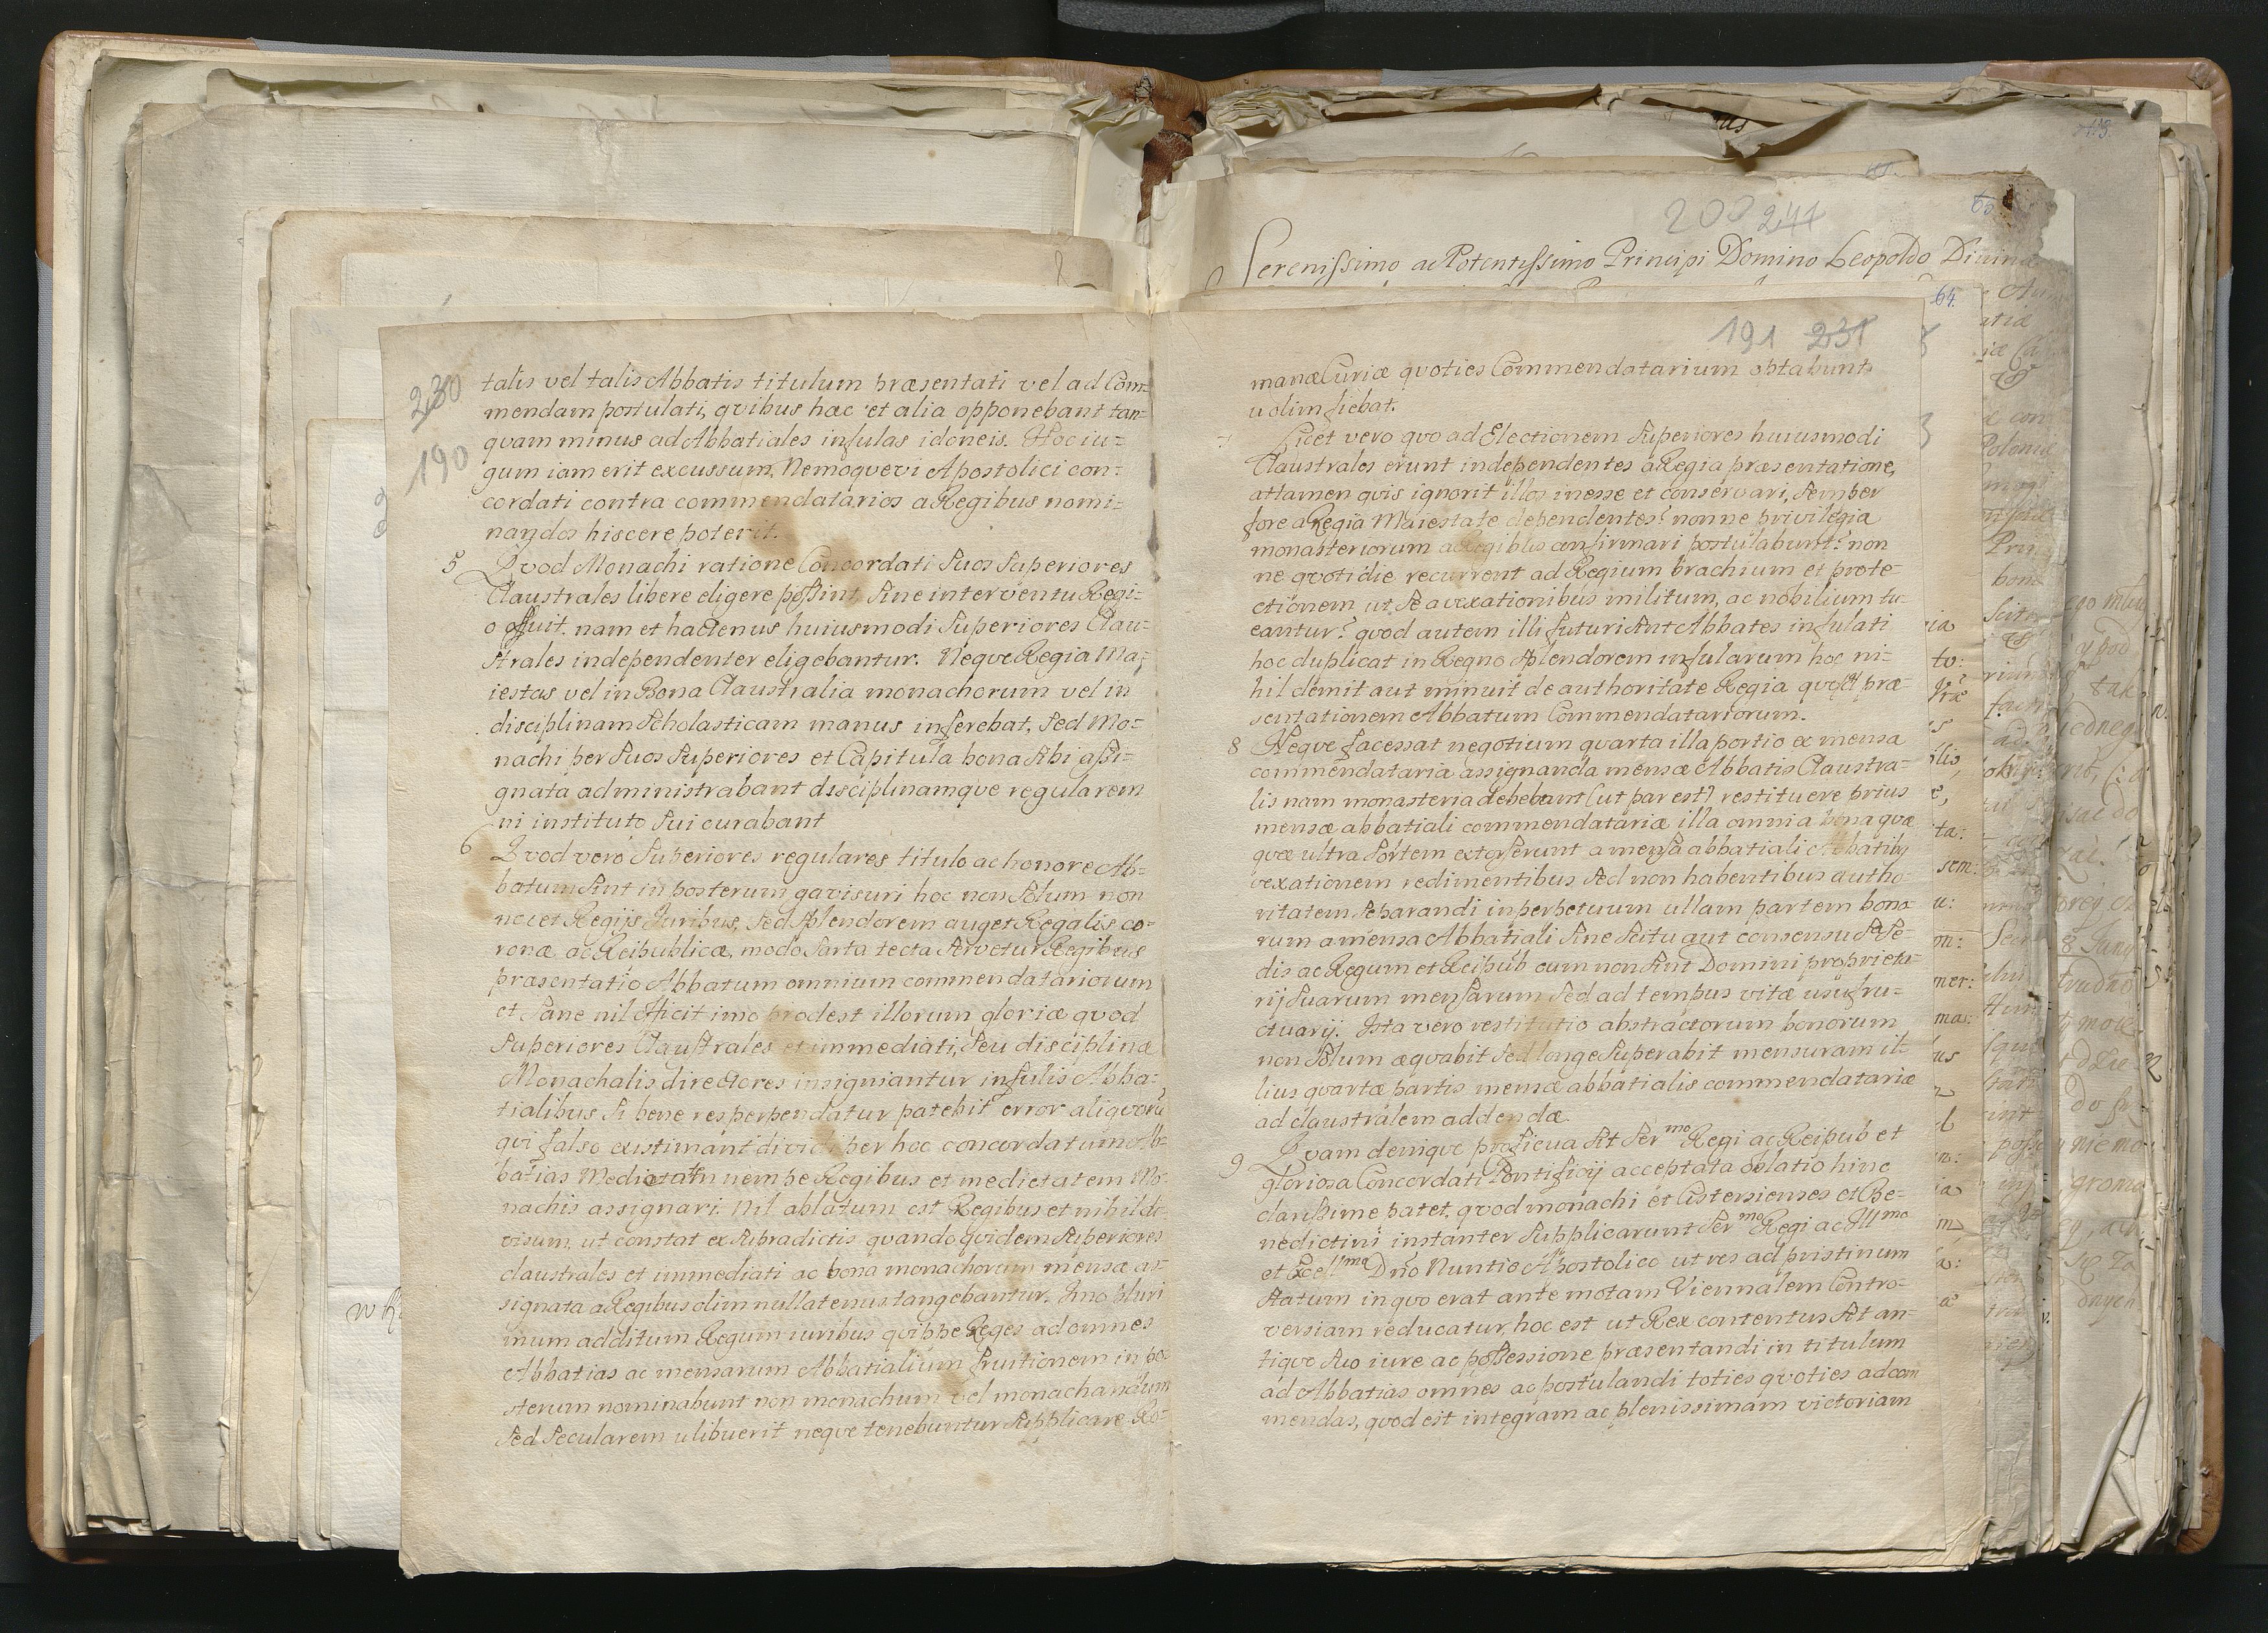 230
190
talis vel talis Abbatis titulum præsentati vel ad Com=
mendam postulati, qvibus hac et alia opponebant tan=
qvam minus ad Abbatiales infulas idoneis. Hoc iu=
gum iam erit excussum, Nemoqve vi Apostolici con=
cordati contra commendatarios a Regibus nomi=
nandos hiscere poterit.
5 Qvod Monachi ratione Concordati suos Superiores
Claustrales libere eligere possint sine interventu Regi=
o nam et hactenus huiusmodi Superiores Clau=
strales independenter eligebantur. Neqve Regia Ma=
iestas vel in Bona Claustralia monachorum vel in
disciplinam Scholasticam manus inferebat, sed Mo=
nachi per suos Superiores et Capitula bona sibi assi=
gnata administrabant disciplinamqve regularem
ni instituto sui curabant
6 Qvod vero Superiores regulares titulo ac honore Ab=
batum sint in posterum gavisuri hoc non solum non
nocet Regijs Iuribus, sed splendorem auget Regalis co=
ronæ ac Reipublicæ, modo sarta tecta servetur Regibus
præsentatio Abbatum omnium commendatariorum
et sane nil officit imo prodest illorum gloriæ qvod
Superiores Claustrales et immediati, seu disciplinæ
Monachalis directores insigniantur infulis Abba=
tialibus si bene res perpendatur patebit error aliqvorū
qvi falso existimant dividi per hoc concordatum Ab=
batias Medietatem nempe Regibus et medietatem Mo=
nachis assignari. Nil ablatum est Regibus et nihil di=
visum, ut constat ex supradictis qvandoqvidem Superiores
claustrales et immediati ac bona monachorum mensæ as=
signata a Regibus olim nullatenus tangebantur. Imo pluri
mum additum Regum iuribus qvippe Reges ad omnes
Abbatias ac mensarum Abbatialium fruitionem in po=
sterum nominabunt non monachum vel monachandum
sed secularem u libuerit neqve tenebuntur supplicare Ro=
200 241
Serenissimo ac Potentissimo Principi Domino Leopoldo Divina
64.
191 231
manæ Curiæ qvoties Commendatarium optabunt
u olim fiebat.
7 Licet vero qvo ad Electionem Superiores huiusmodi
Claustrales erunt independentes a Regia præsentatione,
attamen qvis ignorit illos inesse et conservari, semper
fore a Regia Maiestate dependentes? nonne privilegia
monasteriorum a Regibus confirmari postulabunt? non
ne qvotidie recurrent ad Regium brachium et prote=
ctionem ut se a vexationibus militum, ac nobilium tu=
eantur? qvod autem illi futuri sint Abbates infulati
hoc duplicat in Regno splendorem infularum hoc ni=
hil demit aut minuit de authoritate Regia præ=
sentationem Abbatum Commendatariorum.
8 Neqve facessat negotium qvarta illa portio ex mensa
commendataria assignanda mensæ Abbatis Claustra=
lis nam monasteria debebunt (ut par est) restituere prius
mensæ abbatiali commendatariæ illa omnia bona qvæ
qvæ ultra sortem extorserunt a mensa abbatiali Abbatib9
vexationem redimentibus sed non habentibus autho=
ritatem separandi in perpetuum ullam partem bono=
rum a mensa Abbatiali sine scitu aut consensu S. Se=
dis ac Regum et Reipub cum non sint Domini proprieta=
rij suarum mensarum sed ad tempus vitæ usufru=
ctuarij. Ista vero restitutio abstractorum bonorum
non solum æqvabit sed longe superabit mensuram il=
lius qvartæ partis mensæ abbatialis commendatariæ
ad claustralem addendæ.
9 Qvam deniqve proficua sit Ser mo Regi ac Reipub et
gloriosa Concordati Pontificij acceptata oblatio hinc
clarissime patet, qvod monachi et Cistersienses et Be=
nedictini instanter supplicarunt Ser mo Regi ac Ill mo
et Excell mo Dno Nuntio Apostolico ut res ad pristinum
statum in qvo erat ante motam Viennalem Contro=
versiam reducatur, hoc est ut Rex contentus sit an=
tiqvo suo iure ac possessione præsentandi in titulum
ad Abbatias omnes ac postulandi toties qvoties ad com
mendas, qvod est integram ac plenissimam victoriam